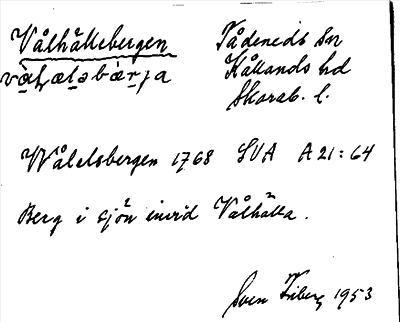 Vålhällebergen
Tådeneds sn
Kållands hd
Skarab. l.
Wålelsbergen 1768 SVA A 21:64
Berg i sjön invid Vålhälla.
Sven Friberg 1953